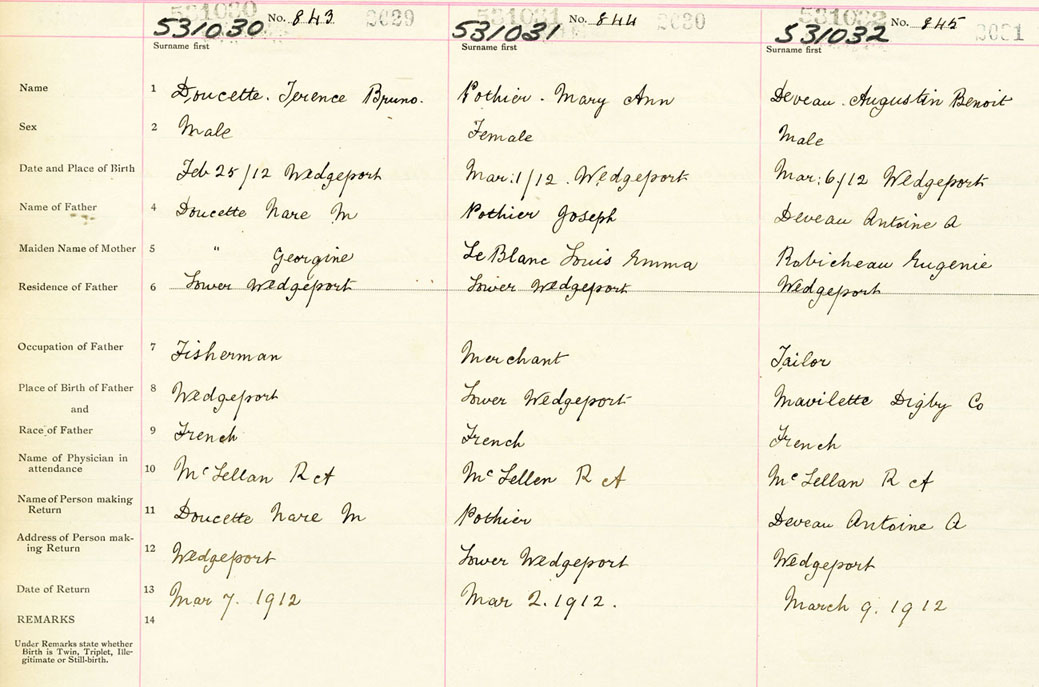 531030 No. 843 2029 531031 No. 844 2030 531032 No. 845 2031
531030 531031 531032
Surname first Surname first Surname first
Name 1 Doucette. Terence Bruno. Pothier. Mary Ann Deveau. Augustin Benoit
Sex 2 Male Female Male
Date and Place of Birth 3 Feb 25/12 Wedgeport Mar:1/12. Wedgeport Mar:6/12 Wedgeport
Name of Father 4 Doucette Nare M Pothier Joseph Deveau Antoine A
Maiden Name of Mother 5 " Georgine Le Blanc Louis Emma Robicheau Eugenie
Residence of Father 6 Lower Wedgeport Lower Wedgeport Wedgeport
Occupation of Father 7 Fisherman Merchant Tailor
Place of Birth of Father 8 Wedgeport Lower Wedgeport Mavilette Digby Co
and
Race of Father 9 French French French
Name of Physician in
attendance 10 McLellan R A McLellen R A McLellan R A
Name of Person making
Return 11 Doucette Nare M Pothier Deveau Antoine A
Address of Person mak-
ing Return 12 Wedgeport Lower Wedgeport Wedgeport
Date of Return 13 Mar 7. 1912 Mar 2. 1912. March 9. 1912
REMARKS 14
Under Remarks state whether
Birth is Twin, Triplet, Ille-
gitimate or Still-birth.